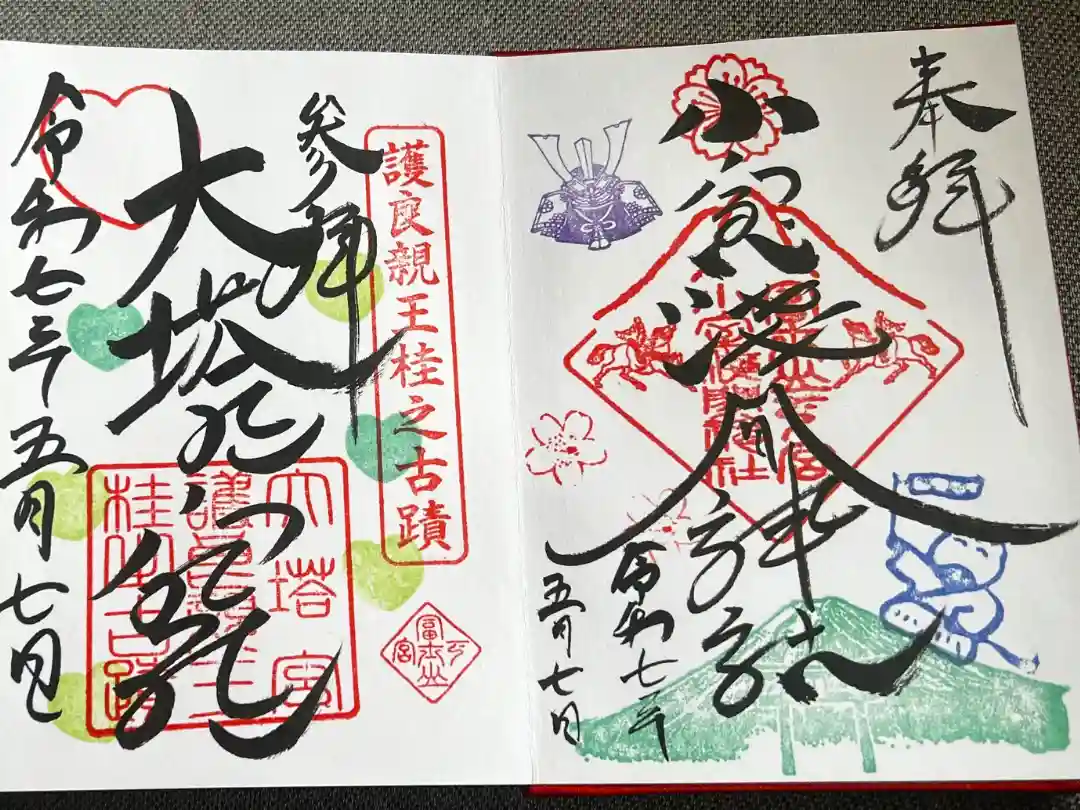 奉拝
小室浅間神社
冨士山下宮
小室浅間神社
令和七年
五月七日
参拝
護良親王桂之古蹟
大塔
大塔宮
護良親王
桂之古蹟
冨士山
下宮
令和七年五月七日